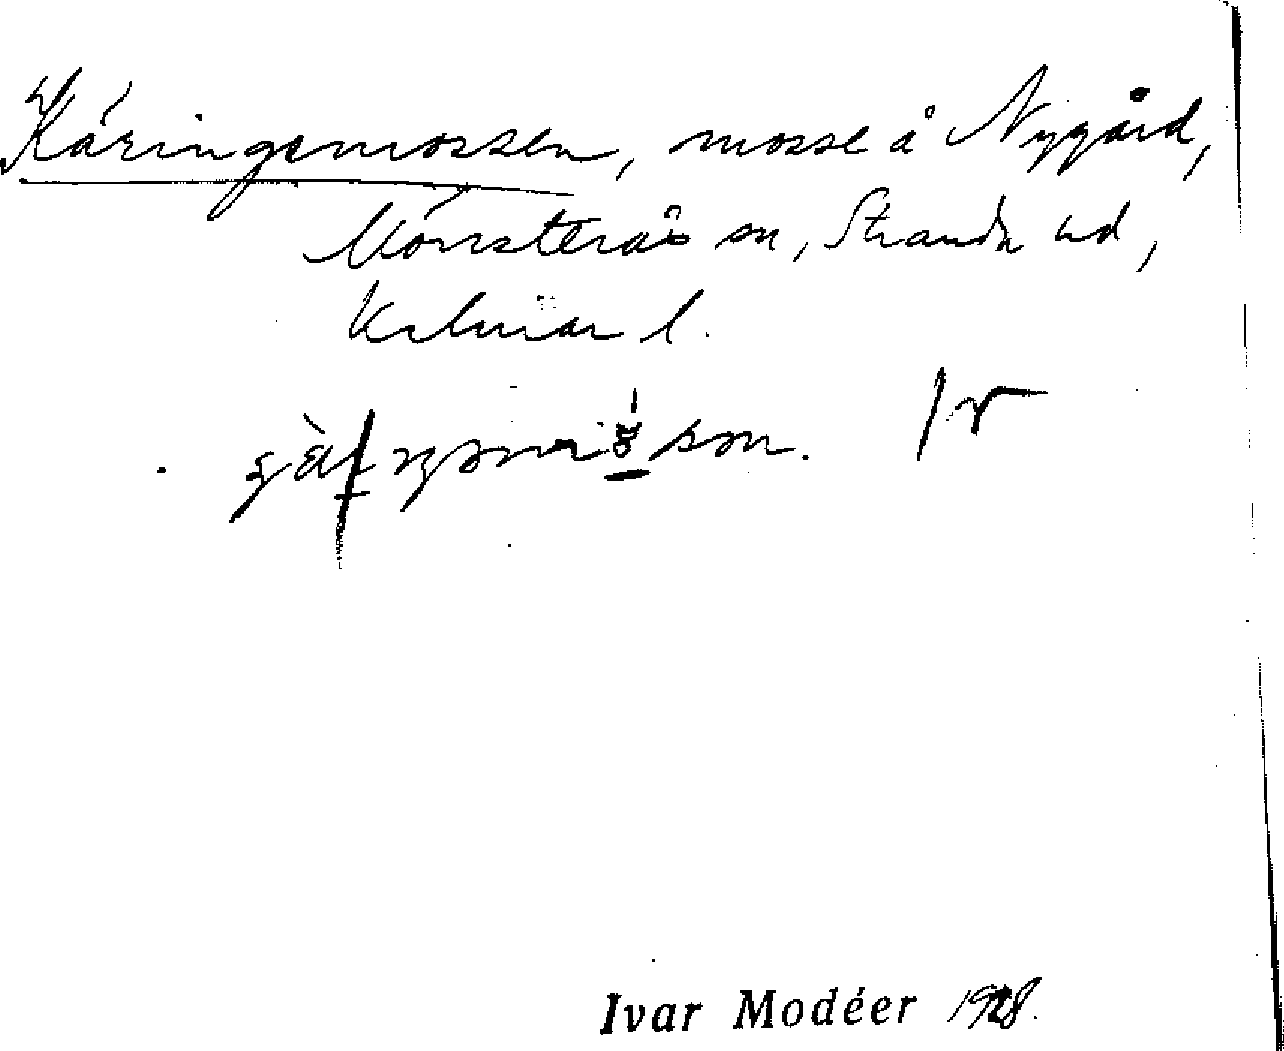 Käringemossen, mosse å Nygård,
Mönsterås sn, Stranda hd,
Kalmar l.
Ivar Modéer 1928.